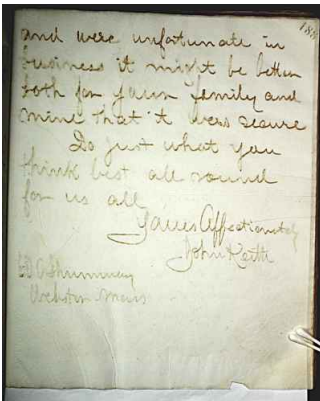 and were unfortunate in
business it might be better
both for your family and
mine that it were secure
Do just what you
think best all round
for us all
Yours Affectionately
John Keith
Shumway
Webster Mass